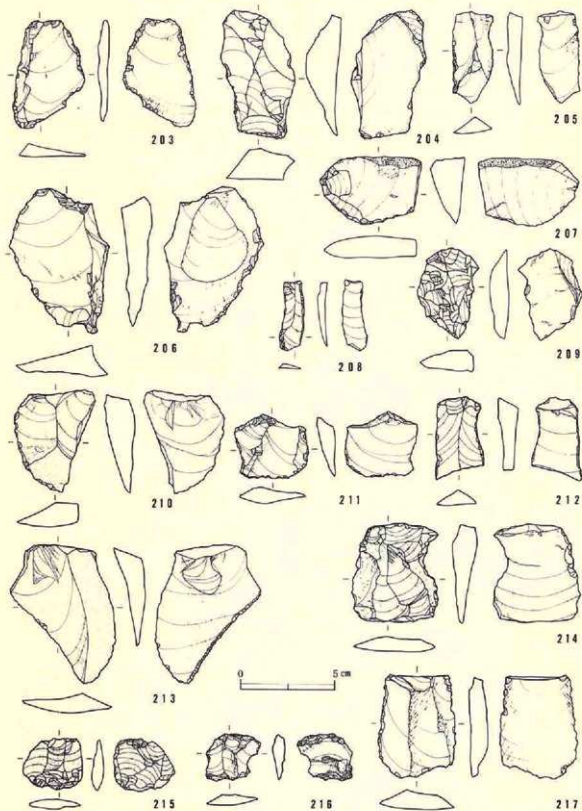 203
204
205
206
207
208
209
210
211
212
213
214
0 5cm
215
216
217